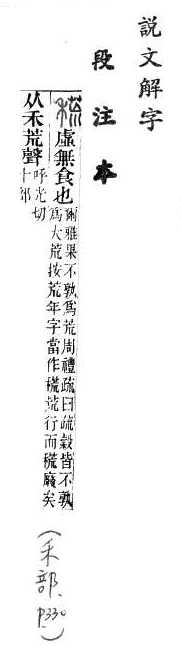 說文解字
段注本
𥞚虛無食也爾雅果不孰爲荒周禮疏曰疏穀皆不孰
爲大荒按荒年字當作𥞚荒行而𥞚廢矣
从禾荒聲呼光切
十部
(禾部、P330)